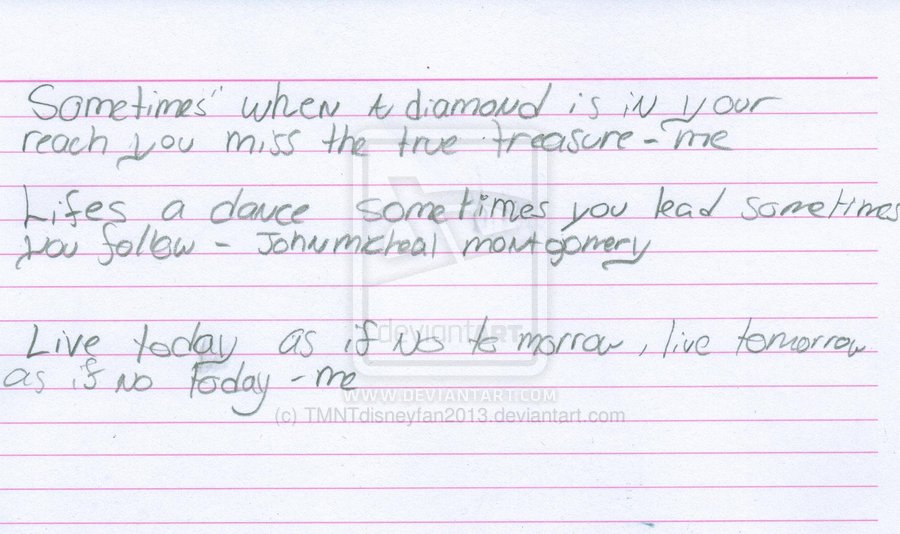 Sometimes" when a diamond is in your
reach you miss the true treasure - me
Lifes a dance sometimes you lead sometimes
you follow - Johnmicheal montgomery
Live today as if no to morrow, live tomorrow
as if no today - me
deviantART
WWW.DEVIANTART.COM
(c) TMNTdisneyfan2013.deviantart.com